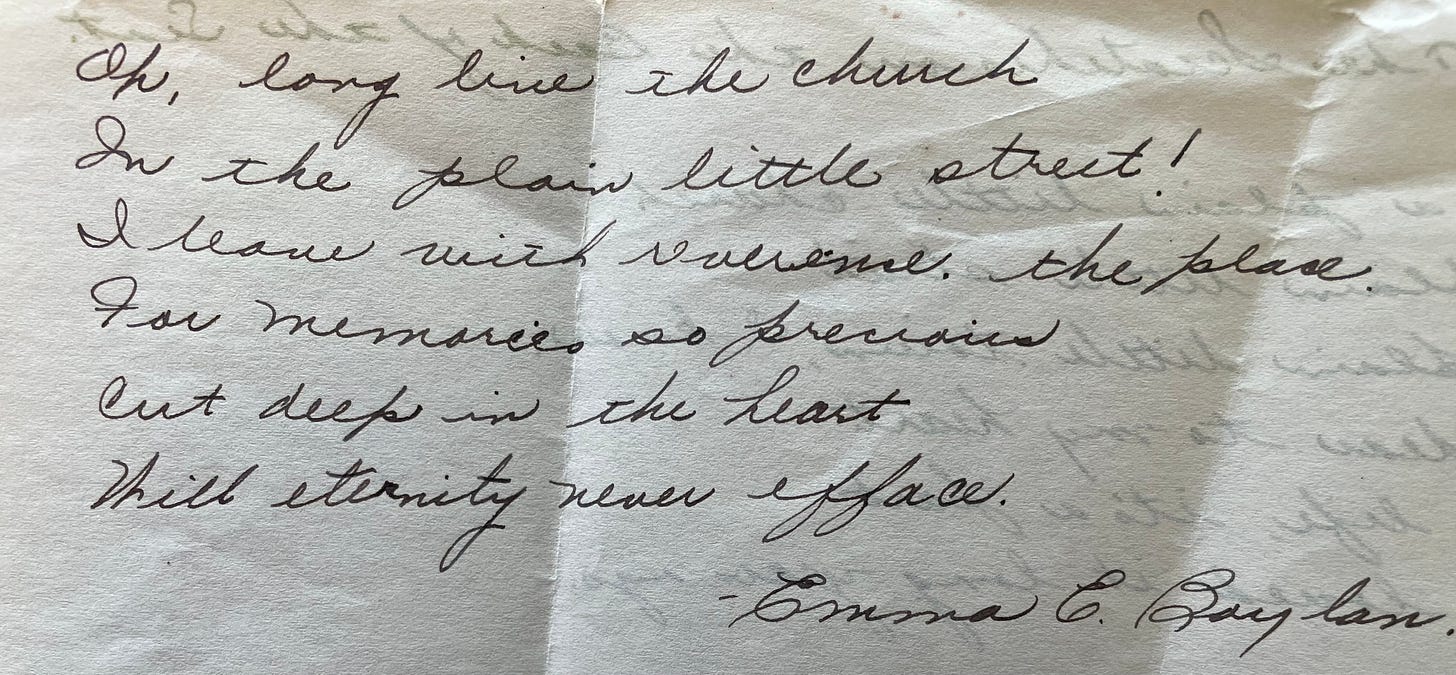 Oh, long live the church
In the plain little street!
I leave with reverence. the place.
For memories so precious
Cut deep in the heart
Will eternity never efface.
-Emma E. Boylan.